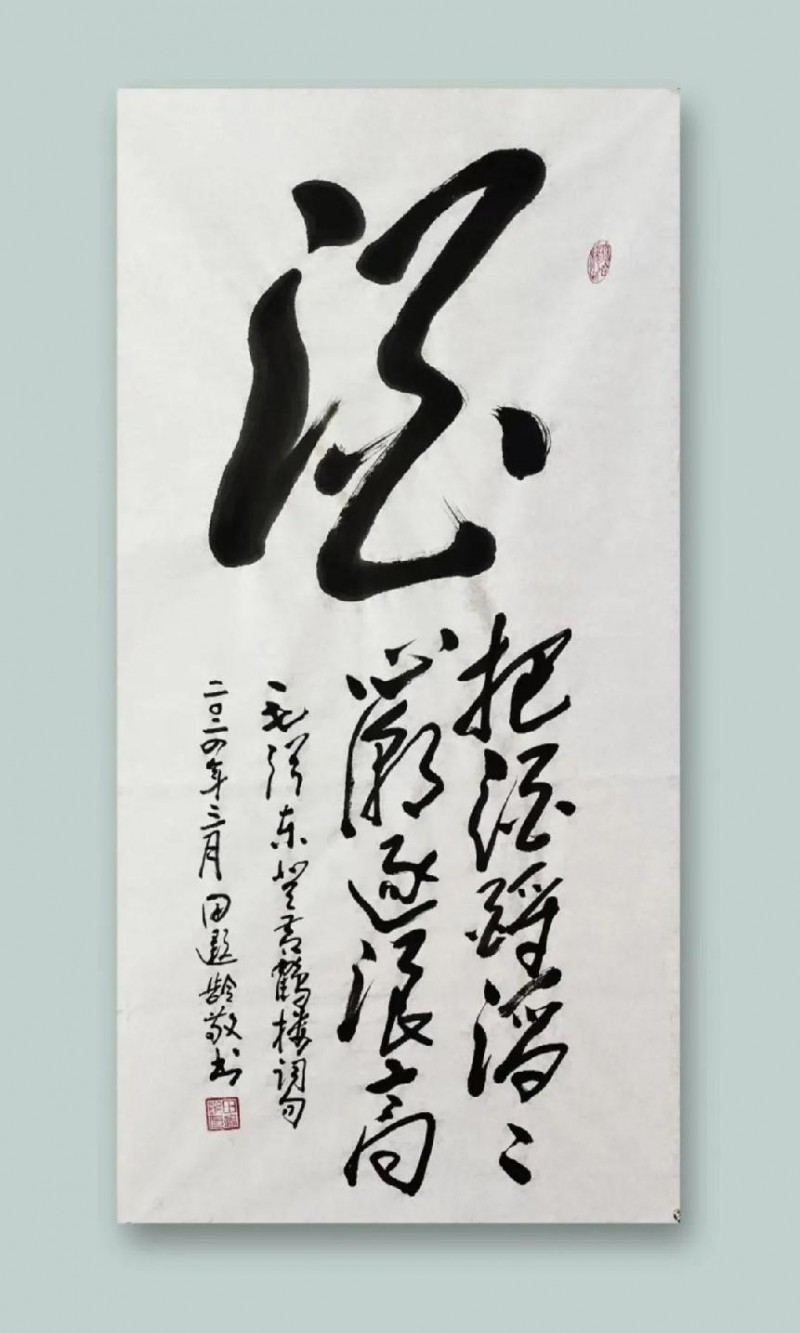 酒
把酒酹滔〻
心潮逐浪高
毛泽东登黄鹤楼词句
二〇二四年三月 田遐龄敬书